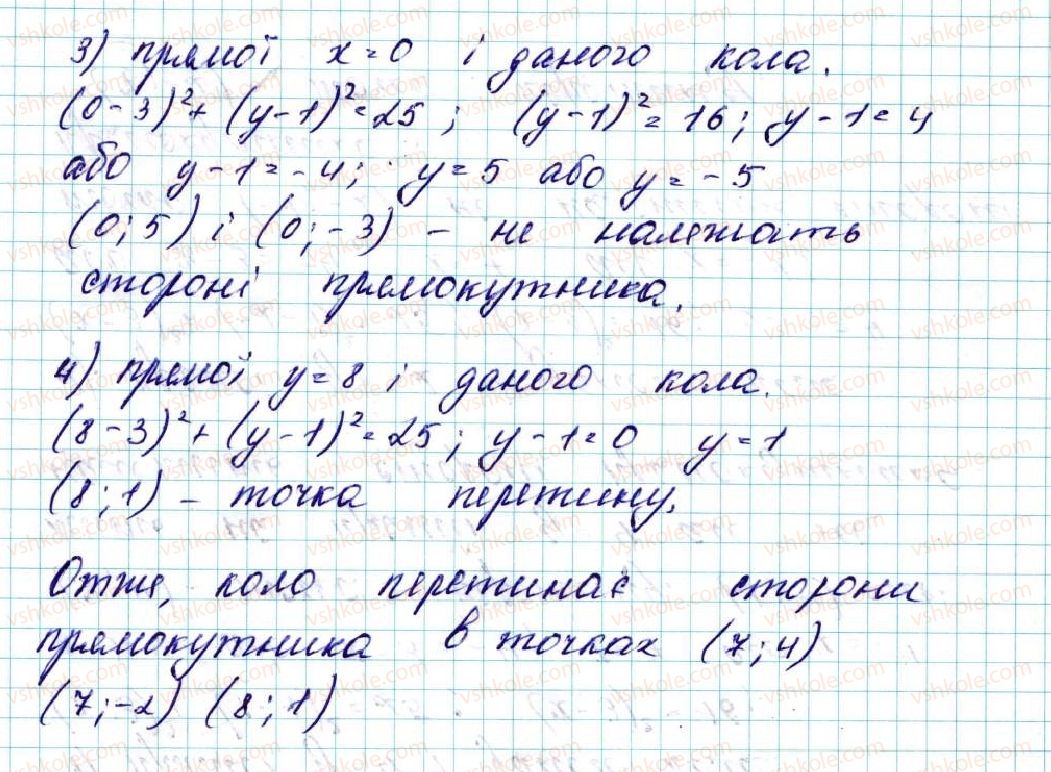 3) прямої x=0 і даного кола.
(0-3)²+(y-1)²=25; (y-1)²=16; y-1=4
або y-1=-4; y=5 або y=-5
(0;5) і (0;-3) - не належать
стороні прямокутника.
4) прямої y=8 і даного кола.
(8-3)²+(y-1)²=25; y-1=0 y=1
(8;1) - точка перетину.
Отже, коло перетинає сторони
прямокутника в точках (7;4)
(7;-2) (8;1)